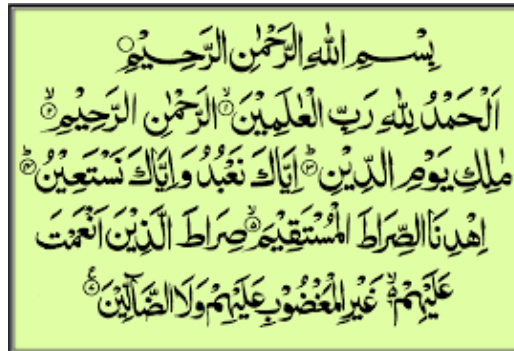 بِسْمِ اللهِ الرَّحْمٰنِ الرَّحِيْمِ
اَلْحَمْدُ لِلّٰهِ رَبِّ الْعٰلَمِيْنَ ۙ‏﴿۱﴾ الرَّحْمٰنِ الرَّحِيْمِ ۙ‏﴿۲﴾
مٰلِكِ يَوْمِ الدِّيْنِ ؕ‏﴿۳﴾ اِيَّاكَ نَعْبُدُ وَاِيَّاكَ نَسْتَعِيْنُ ؕ‏﴿۴﴾
اِهْدِنَا الصِّرَاطَ الْمُسْتَقِيْمَ ۙ‏﴿۵﴾ صِرَاطَ الَّذِيْنَ اَنْعَمْتَ
عَلَيْهِمْ ۙ‏﴿۶﴾ غَيْرِ الْمَغْضُوْبِ عَلَيْهِمْ وَلَا الضَّآلِّيْنَ ﴿۷﴾